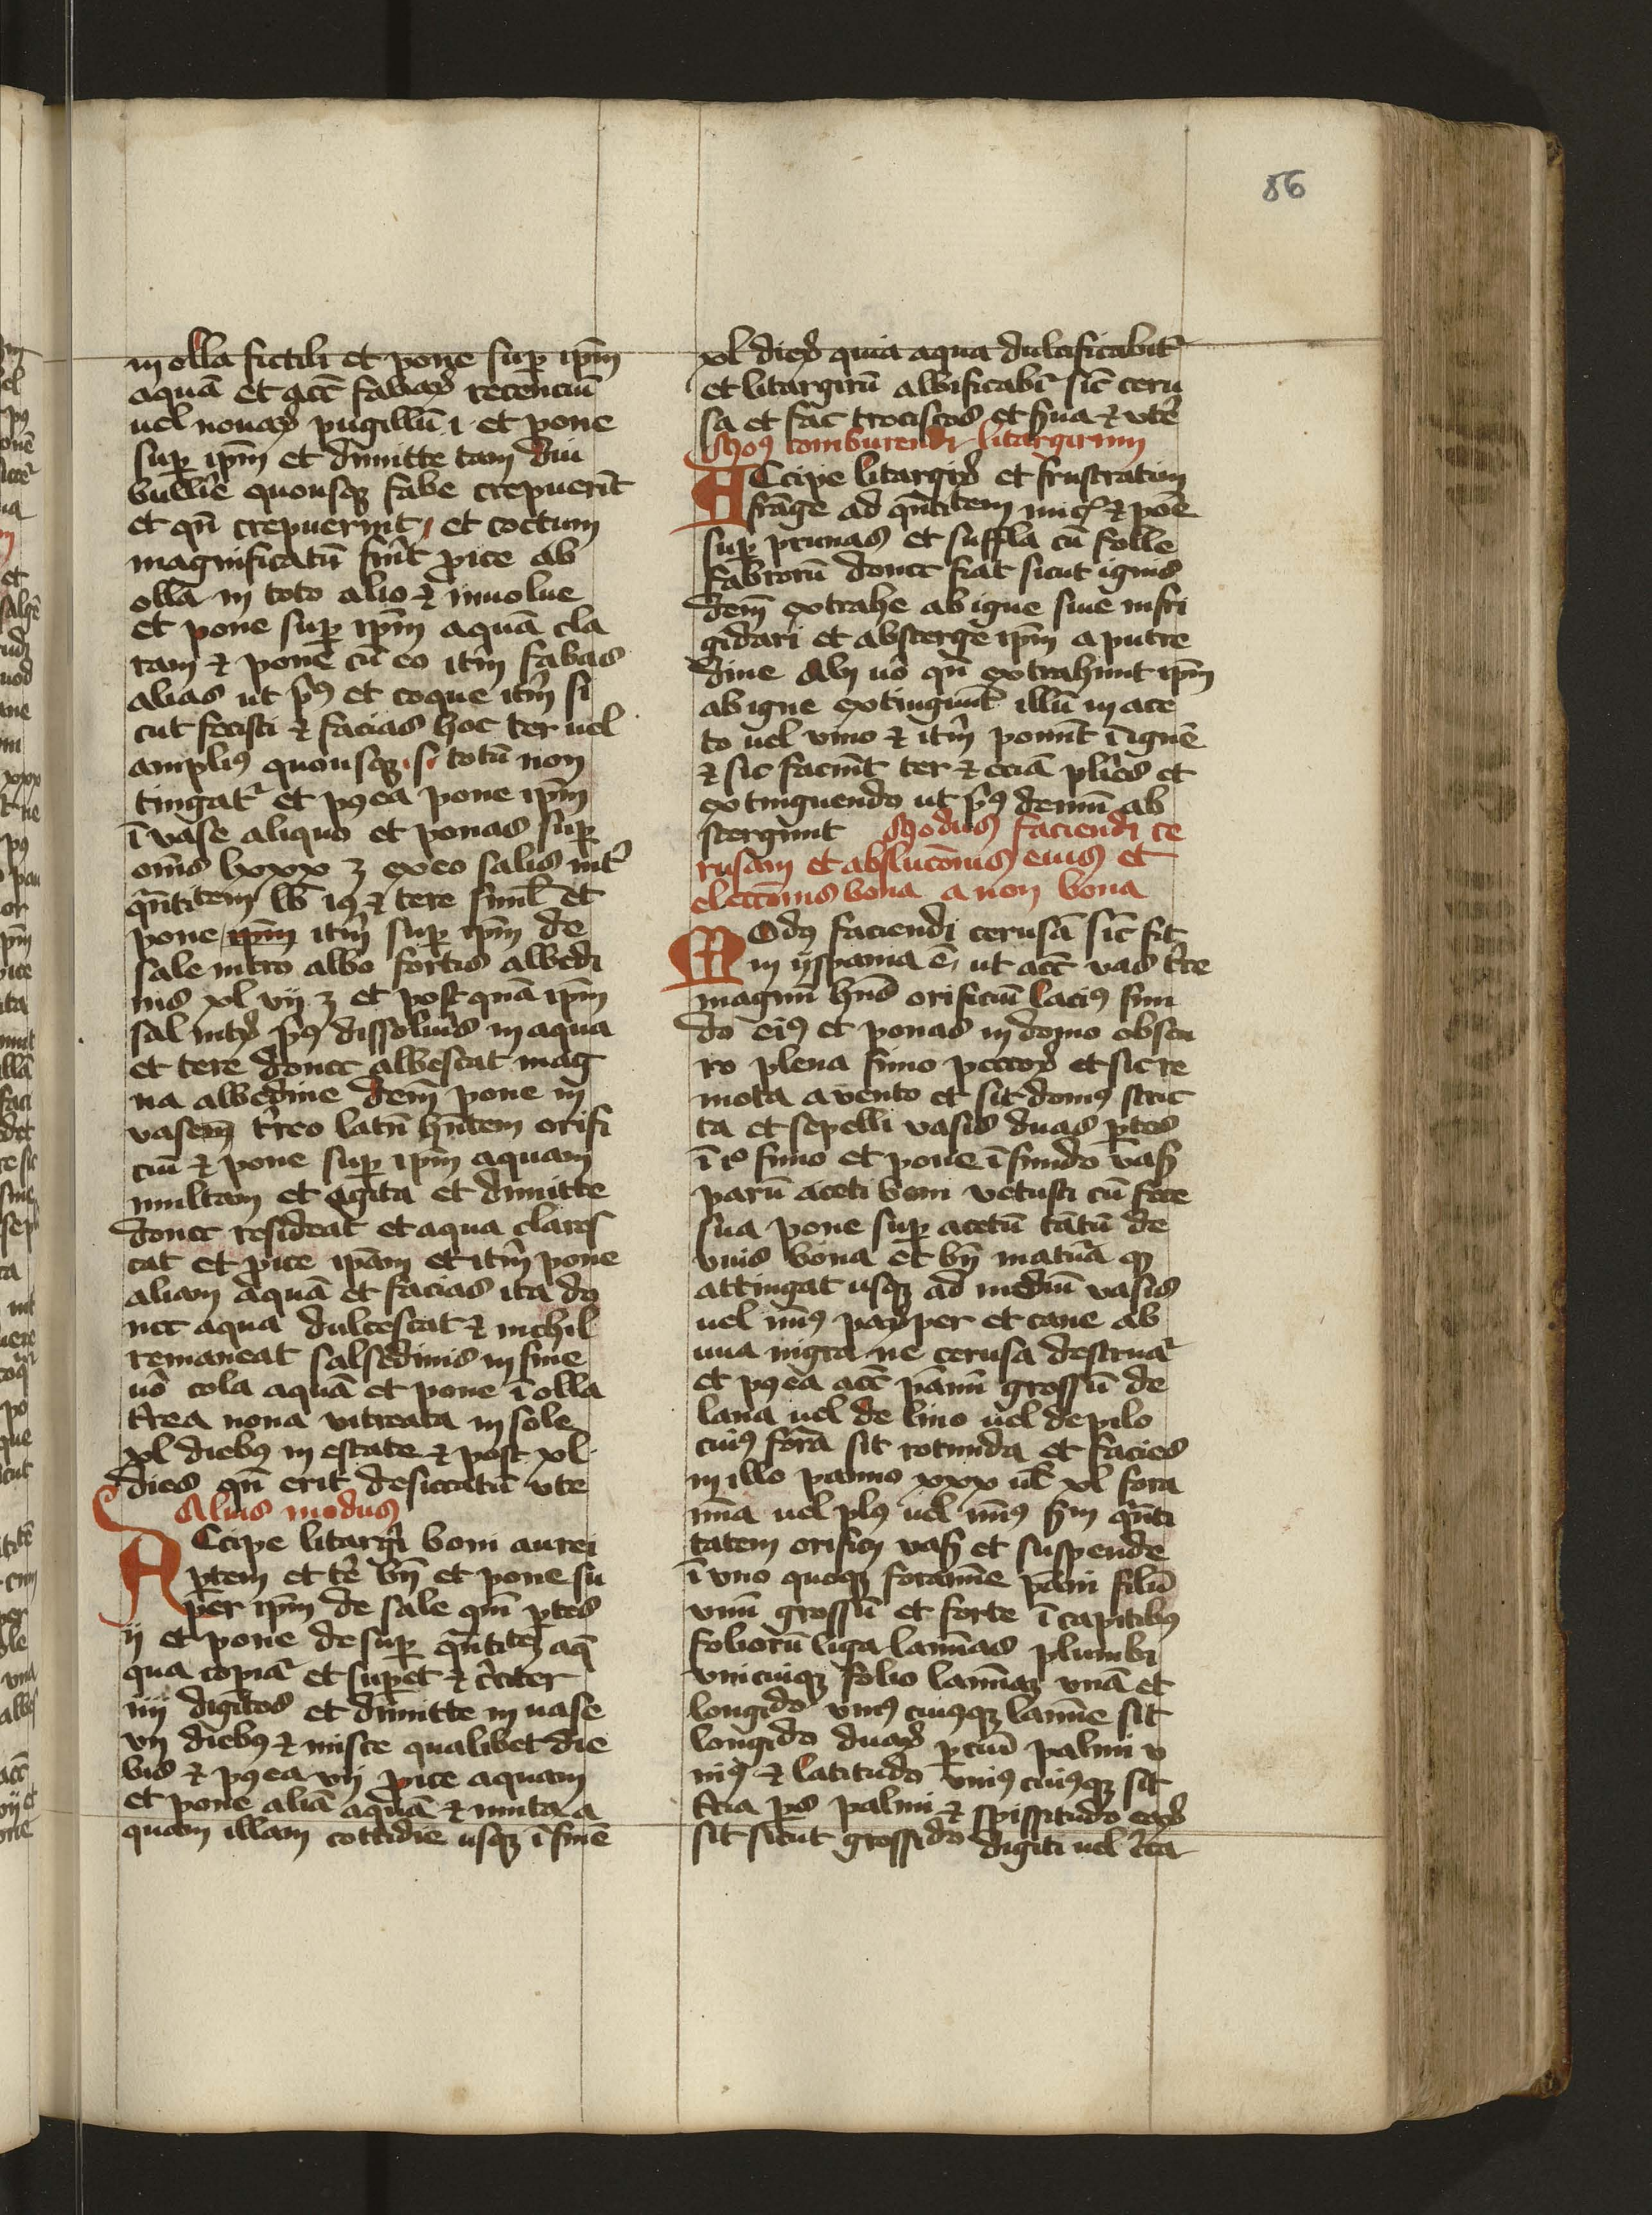 86
in olla fictili et pone sup ipm̄
aquā et acc̄ fabaꝝ recenciū
uel nouaꝝ pugillū i et pone
sup ipm̄ et dimitte tam diu
bullir̄e quousqꝫ fabe crepuerīt
et qn̄ crepuerint et coctum
magnificatū fūit ꝓice ab
olla in toto alio ⁊ inuolue
et pone sup ipm̄ aquā cla
ram ⁊ pone cū eo itm̄ fabas
alias ut pꝰ et coque itm̄ si
cut fecisti ⁊ facias hoc ter uel
ampliꝰ quousqꝫ si totū non
tingatr̄ et pꝰea pone ipm̄
ī vase aliquo et ponas sup
om̄s lxxx ʒ ex eo salis nitr̄
qn̄titem lb iꝰ ⁊ tere siml̄ et
pone ipm̄ itm̄ sup ipm̄ de
sale nitro albo fortis albedi
nis xl vij ʒ et post quā ipm̄
sal nitꝝ pꝰ dissoluis in aqua
et tere donec albescat mag
na albedine dem̄ pone in
vasem t̄reo latū hn̄tem orifi
ciū ⁊ pone sup ipm̄ aquam
multam et agita et dimitte
donec resideat et aqua claref
cat et ꝓice ipam̄ et itm̄ pone
aliam aquā et facias ita do
nec aqua dulcescat ⁊ nichil
remaneat salsedinis in fine
uō cola aquā et pone ī olla
t̄rea noua vitreata in sole
xl diebꝰ in estate ⁊ post xl
dies qn̄ erit desiccatū vte
Alius modus
Accipe litargi boni aurei
ꝑtem et te bn̄ et pone su
per ipm̄ de sale qm̄ ꝑtes
ij et pone desup qn̄titeꝫ aq̄
qua copiar̄ et supet ⁊ c̄citer
iiij digitos et dimitte in uase
vij diebꝰ ⁊ misce qualibet die
bis ⁊ pꝰea vij ꝓice aquam
et pone aliā aquā ⁊ muta a
quam illam cottidie usqꝫ ī finē
xl dieꝝ quia aqua dulcificabitr̄
et litargirū albificabr̄ sic̄ ceru
sa et fac trociscos et s̄ua ⁊ vtē
Moꝰ comburendi litargirum
Accipe litargꝝ et frustratim
frāge ad qn̄titem nucꝭ ⁊ pōe
sup prunas et suffla cū folle
fabrorū donec fiat sicut ignis
dem̄ extrahe ab igne sine infri
gidari et absterge ipm̄ a putre
dine Alij uō qn̄ extrahunt ipm̄
ab igne extingunt̄ illū in ace
to uel vino ⁊ itm̄ ponūt ī ignē
⁊ sic faciūt ter ⁊ eciā plīes et
extinguendo ut pꝰ demū ab
stergunt Modus faciendi ce
rusam et ablucōnis eius et
eleccōnis bona a non bona
Modꝰ faciendi cerusā sic̄ fit
in yspania ē ut acc̄ vas t̄re
magnū hn̄s orificiū laciꝰ fun
do eiꝰ et ponas in domo obscu
ro plena fimo peccoꝝ et sic re
mota a vento et sit domꝰ stric
ta et sepelli vasis duas ꝑtes
ī io fimo et pone ī fundo vasꝭ
parū aceti boni vetusti cū fece
sua pone sup acetū tātū de
vuis bona et bn̄ matura qꝫ
attingat usqꝫ ad mediū vasis
uel minꝰ paꝝper et caue ab
uua nigra ne cerusa destruar̄
et pꝰea acc̄ pannū grossū de
lana uel de lino uel de pilo
cuiꝰ forā sit rotunda et facies
in illo panno xxx ul̄ xl fora
mīa uel plꝰ uel minꝰ sm̄ qn̄ti
tatem orificij vasꝭ et suspende
ī vno quoqꝫ foramīe pāni filū
vnū grossū et forte ī capitibꝰ
foliorū liga laminas plumbi
vnicuiqꝫ folio laminaꝫ vnā et
longido vniꝰ cuiusqꝫ lamīe sit
longido duaꝝ ꝑciū palmi v
niꝰ ⁊ latitudo vniꝰ cuiꝰqꝫ sit
t̄cia ps palmi ⁊ spissitudo eaꝝ
sit sicut grossido digiti uel c̄ca